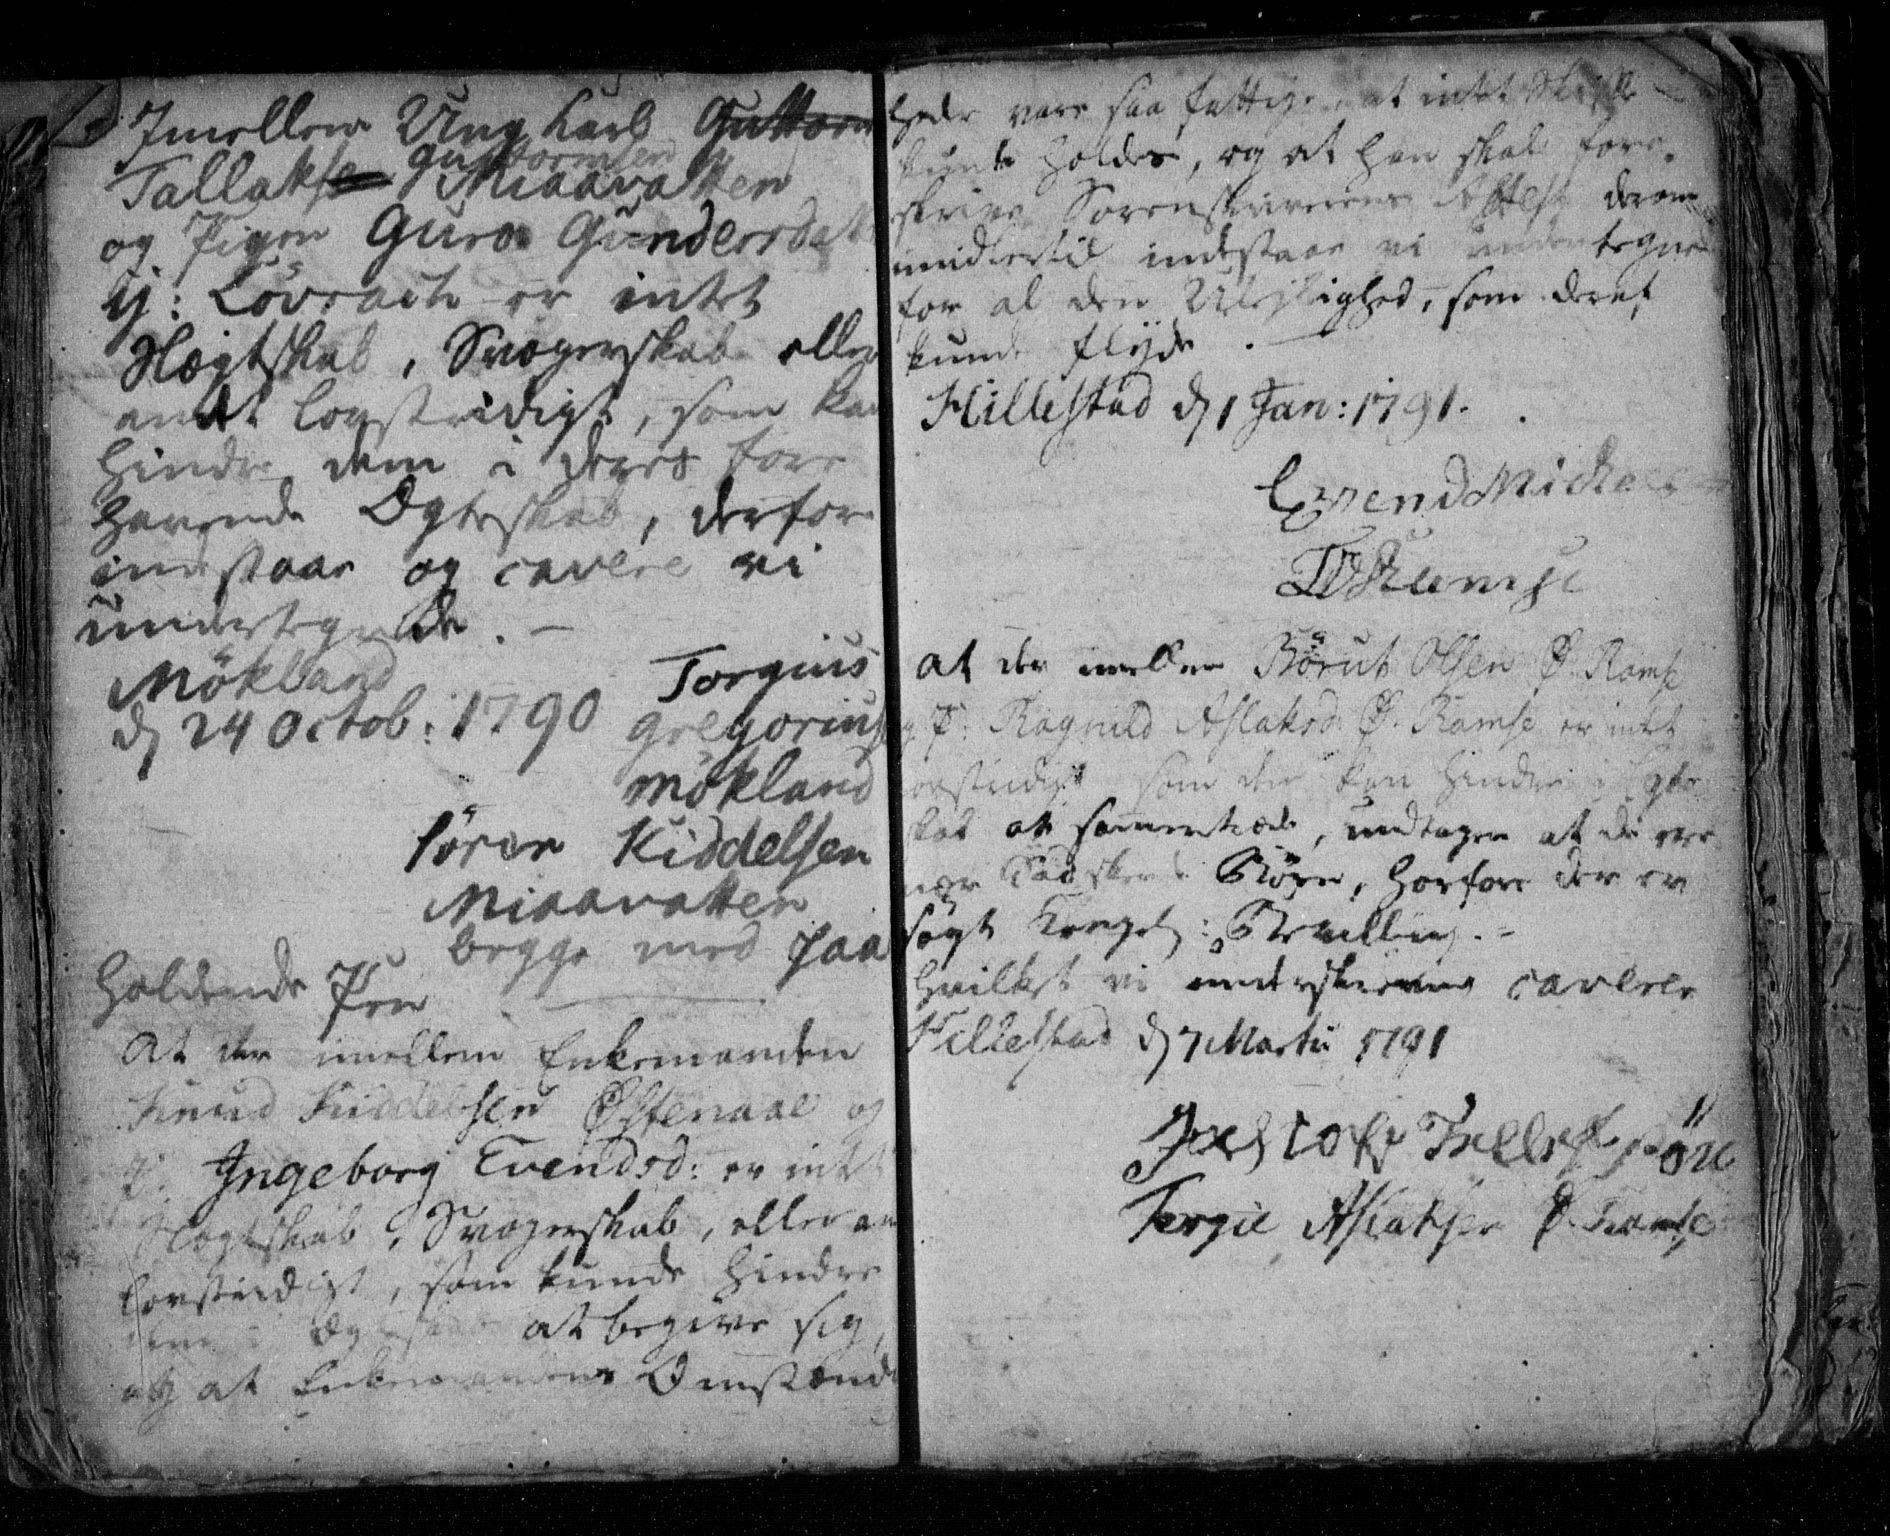 Imellem Ung Karl Guttorm
Tallakse Guttormsen Miaavatten
og Pigen Guro Gundersdatt
Y: Løvrach er intet
Slægtskab, Svogerskab eller
andt lovstridigt, som kan
hindre dem i deres fore
havende Ægteskab, derfore
indestaar og cavere vi
undertegnede. —
Mökland
d 24 Octob: 1790
Torgius
Gregoriuss
Mökland
Sören Kiddelsen
Miaavatten
begge med Paa
holdende Pen.
At der imellem Enkemanden
Knud Kiddelsen Østenaae og
P: Ingeborg Evendsd: er intet
Slægtskab, Svogerskab, eller an
lovstridigt, som kunde hindre
dem i Ægteskab at begive sig,
og at Enkemandens Omstænd
heder vare saa fattige, at intet Skifte
kunde holdes, og at han skal fore
skrive Sorenskriverens Attest derom
imidlertid indestaar vi undertegne
for al den Uleilighed, som deraf
kunde flyde. —
Hillestad d 1 Jan: 1791.
Evend Mickels
At der imellem Börut Olsen Ø. Ramse
og P: Ragnild Aslaksd: Ø. Ramse er intet
lovstridigt som dem kan hindre i Egte
skab at sammentræde, undtagen at de ere
nær Sødskende Börn, hvorfore der er
søgt Kongel: Bevilling. –
hvilket vi underskrevne caverer
Hillestad d 7 Martii 1791
Tergie Aslaksen Ø. Ramse